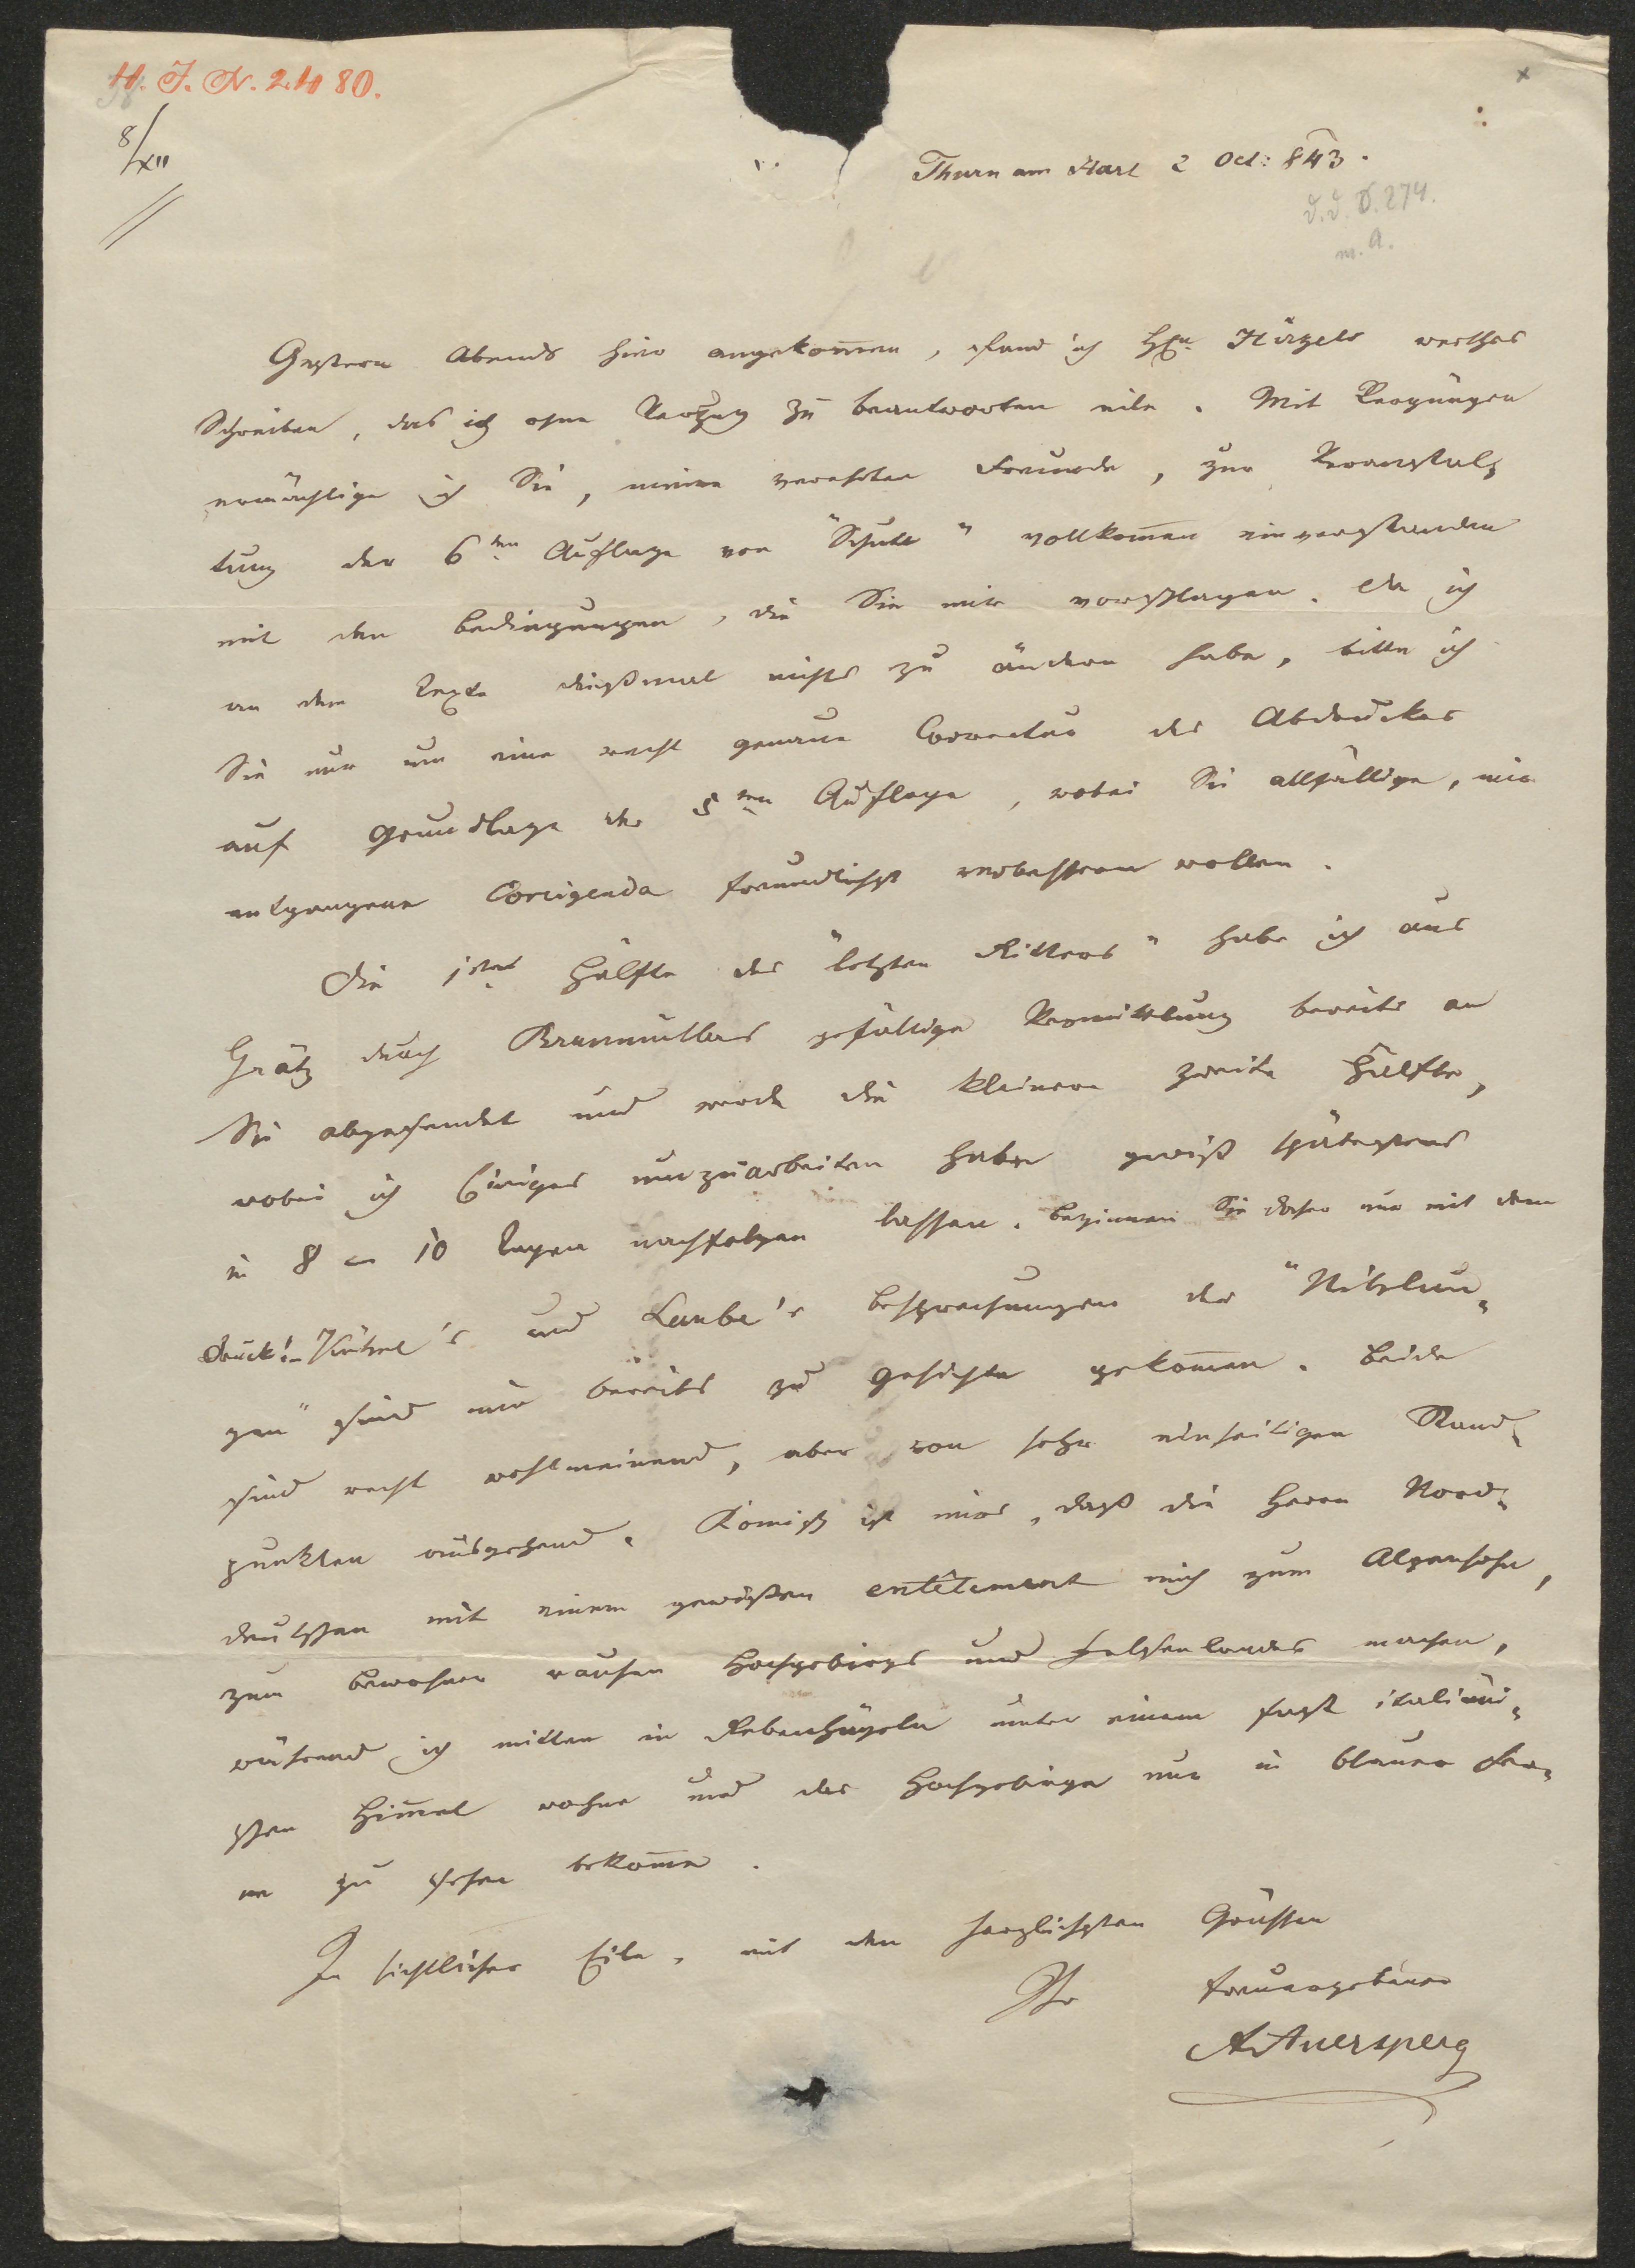 H. I. N. 2480.
8/XII
Thurn am Hart 2 Oct: 843.
D. D. D. 274.
m. A.
Gestern Abends hier angekom̄en, fand ich HEn Hirzels werthes
Schreiben, das ich ohne Verzug zu beantworten eile. Mit Vergnügen
ermächtige ich Sie, meine verehrten Freunde, zur Veranstal-
tung der 6ten Auflage von "Schutt" vollkom̄en einverstanden
mit den Bedingungen, die Sie mir vorschlagen. Da ich
an dem Texte dießmal nichts zu ändern habe, bitte ich
Sie nur um eine recht genaue Correctur des Abdruckes
auf Grundlage der 5ten Auflage, wobei Sie allfällige, mir
entgangene Corrigenda freundlichst verbessern wollen.
Die 1ste Hälfte des "letzten Ritters" habe ich aus
Grätz durch Braumüllers gefällige Vermittlung bereits an
Sie abgesendet und werde die kleinere zweite Hälfte,
wobei ich Einiges umzuarbeiten habe gewiß spätestens
in 8 – 10 Tagen nachfolgen lassen. Beginnen Sie daher nur mit dem
Druck! – Kühne's und Laube's Besprechungen der "Nibelun-
gen" sind mir bereits zu Gesichte gekom̄en. Beide
sind recht wohlmeinend, aber von sehr einseitigen Stand-
punkten ausgehend. Komisch ist mir, daß die Herrn Nord-
deutschen mit einem gewissen entêtement mich zum Alpensohn,
zum Bewohner rauhen Hochgebirgs und Felsenlandes machen,
während ich mitten in Rebenhügeln unter einem fast italiäni-
schen Him̄el wohne und das Hochgebirge nur in blauer Fer-
ne zu sehen bekom̄e.
In sichtlicher Eile, mit den herzlichsten Grüssen
Ihr treuergebener
AAuersperg